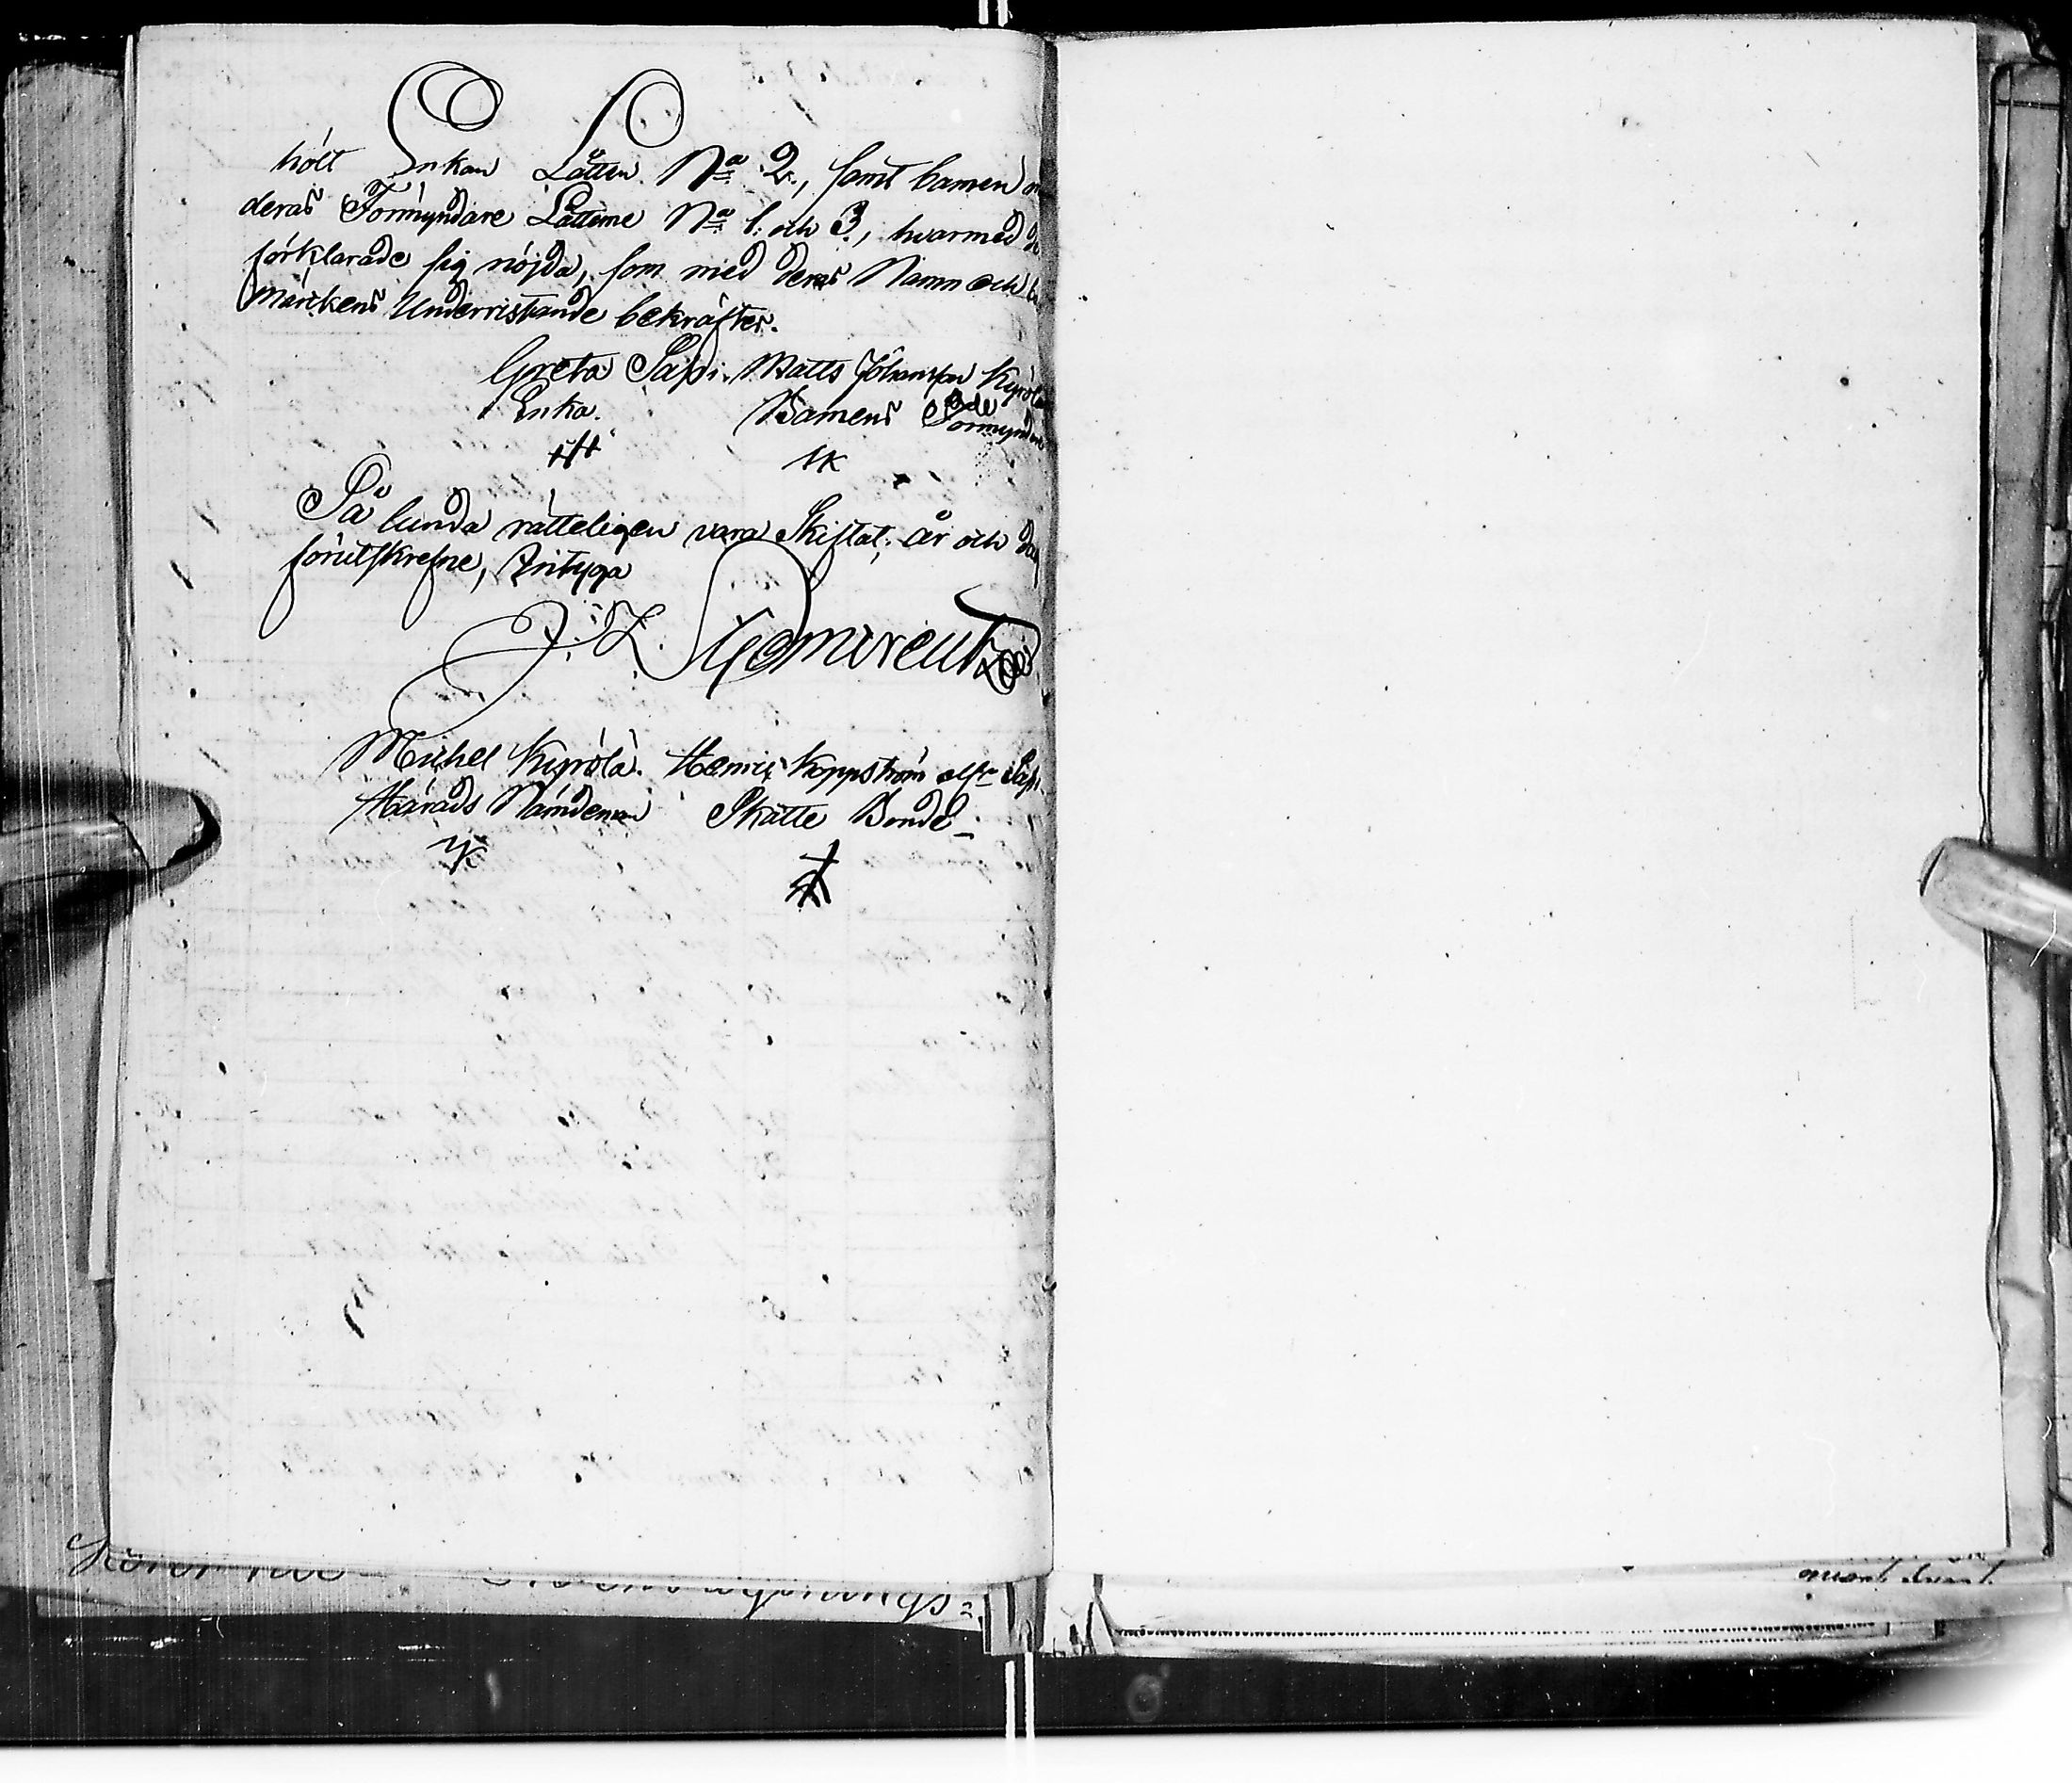 hölt Enkan Låtten Na 2, samt barnen
deras Förmyndare Låtterne Na 1. och 3, hvarmed de
förklarade sig nöjda, som med deras Namn och
märckens Underristande bekräftes.
Greta Säpi. Matts Johansson Kyrölä
Enka. Barnens Förmyndare
Så lunda rätteligen vara Skiftat, år och dag
förutskrefne, Bntyga
J. Z.
Michel Kyrölä. Henric Koppström
Härads Nämdeman Skatte Bonde